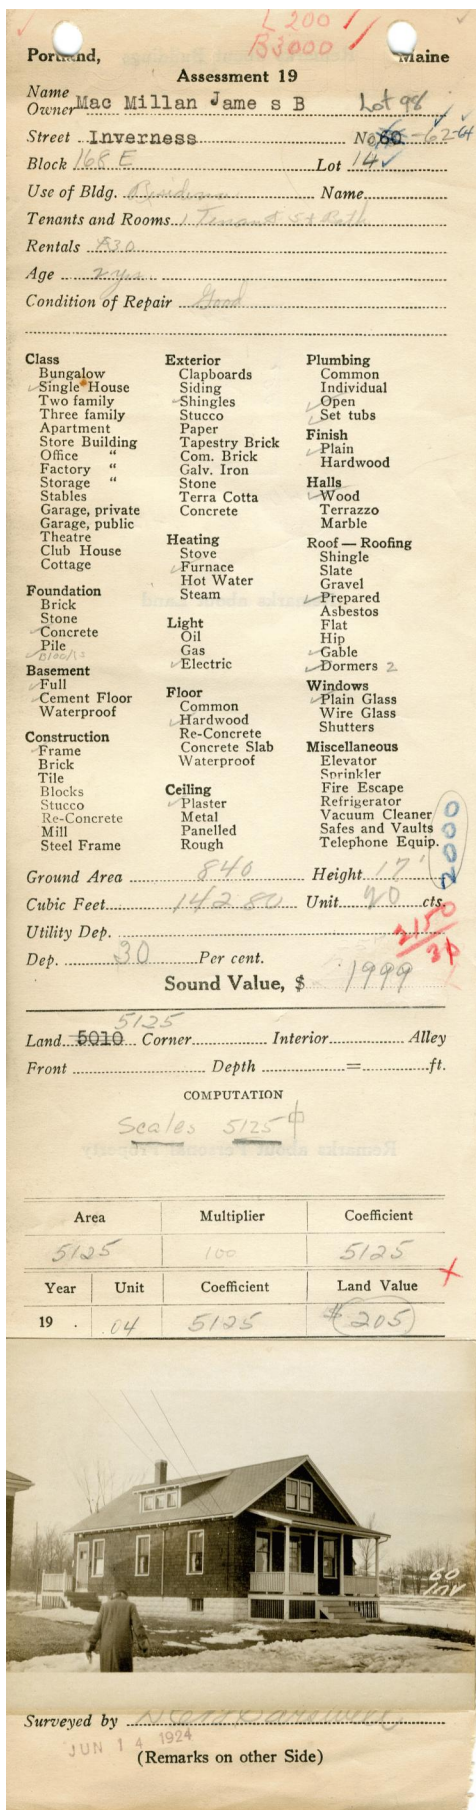 L 200
B 3000
Portland, Maine
Assessment 19
Name
Owner Mac Millan Jame s B Lot 98
Street Inverness No 60 -62-64
Block 168 E Lot 14
Use of Bldg. Residence Name
Tenants and Rooms 1 Tenant 5 + Bath
Rentals $30
Age 2 yrs
Condition of Repair Good
Class
Bungalow
Single House
Two family
Three family
Apartment
Store Building
Office "
Factory "
Storage "
Stables
Garage, private
Garage, public
Theatre
Club House
Cottage
Foundation
Brick
Stone
Concrete
Pile
Blocks
Basement
Full
Cement Floor
Waterproof
Construction
Frame
Brick
Tile
Blocks
Stucco
Re-Concrete
Mill
Steel Frame
Exterior
Clapboards
Siding
Shingles
Stucco
Paper
Tapestry Brick
Com. Brick
Galv. Iron
Stone
Terra Cotta
Concrete
Heating
Stove
Furnace
Hot Water
Steam
Light
Oil
Gas
Electric
Floor
Common
Hardwood
Re-Concrete
Concrete Slab
Waterproof
Ceiling
Plaster
Metal
Panelled
Rough
Plumbing
Common
Individual
Open
Set tubs
Finish
Plain
Hardwood
Halls
Wood
Terrazzo
Marble
Roof — Roofing
Shingle
Slate
Gravel
Prepared
Asbestos
Flat
Hip
Gable
Dormers 2
Windows
Plain Glass
Wire Glass
Shutters
Miscellaneous
Elevator
Sprinkler
Fire Escape
Refrigerator
Vacuum Cleaner
Safes and Vaults
Telephone Equip.
2000
Ground Area 840 Height 17'
Cubic Feet 14280 Unit 20 cts.
Utility Dep.
3150
Dep. 30 Per cent.
Sound Value, $ 1999
5125
Land 5010 Corner Interior Alley
Front Depth = ft.
COMPUTATION
Scales 5125
Area Multiplier Coefficient
5125 100 5125
Year Unit Coefficient Land Value
19 .04 5125 $ 205
60
INV
Surveyed by
JUN 14 1924
(Remarks on other Side)